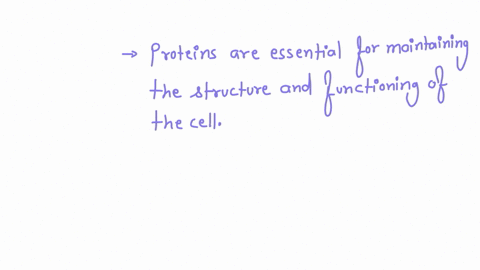 → Proteins are essential for maintaining
the structure and functioning of
the cell.